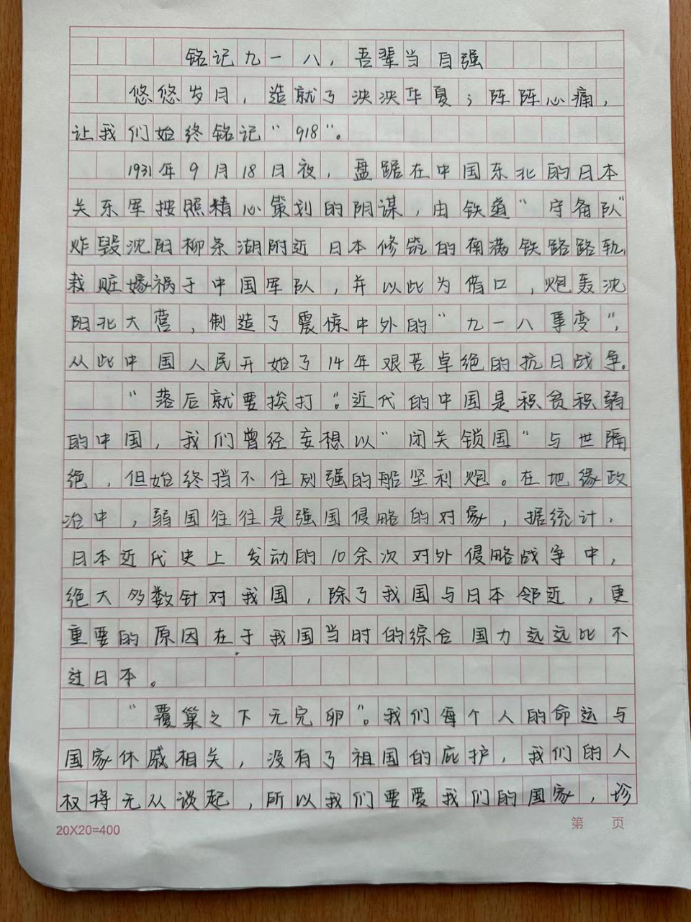 铭记九一八，吾辈当自强
悠悠岁月，造就了泱泱华夏；阵阵心痛，
让我们始终铭记"918"。
1931年9月18日夜，盘踞在中国东北的日本
关东军按照精心策划的阴谋，由铁道"守备队"
炸毁沈阳柳条湖附近日本修筑的南满铁路路轨，
栽赃嫁祸于中国军队，并以此为借口，炮轰沈
阳北大营，制造了震惊中外的"九一八事变"，
从此中国人民开始了14年艰苦卓绝的抗日战争。
"落后就要挨打"。近代的中国是积贫积弱
的中国，我们曾经妄想以"闭关锁国"与世隔
绝，但始终挡不住列强的船坚利炮。在地缘政
治中，弱国往往是强国侵略的对象，据统计，
日本近代史上发动的10余次对外侵略战争中，
绝大多数针对我国，除了我国与日本邻近，更
重要的原因在于我国当时的综合国力远远比不
过日本。
"覆巢之下无完卵"。我们每个人的命运与
国家休戚相关，没有了祖国的庇护，我们的人
权将无从谈起，所以我们要爱我们的国家，珍
20X20=400
第 页